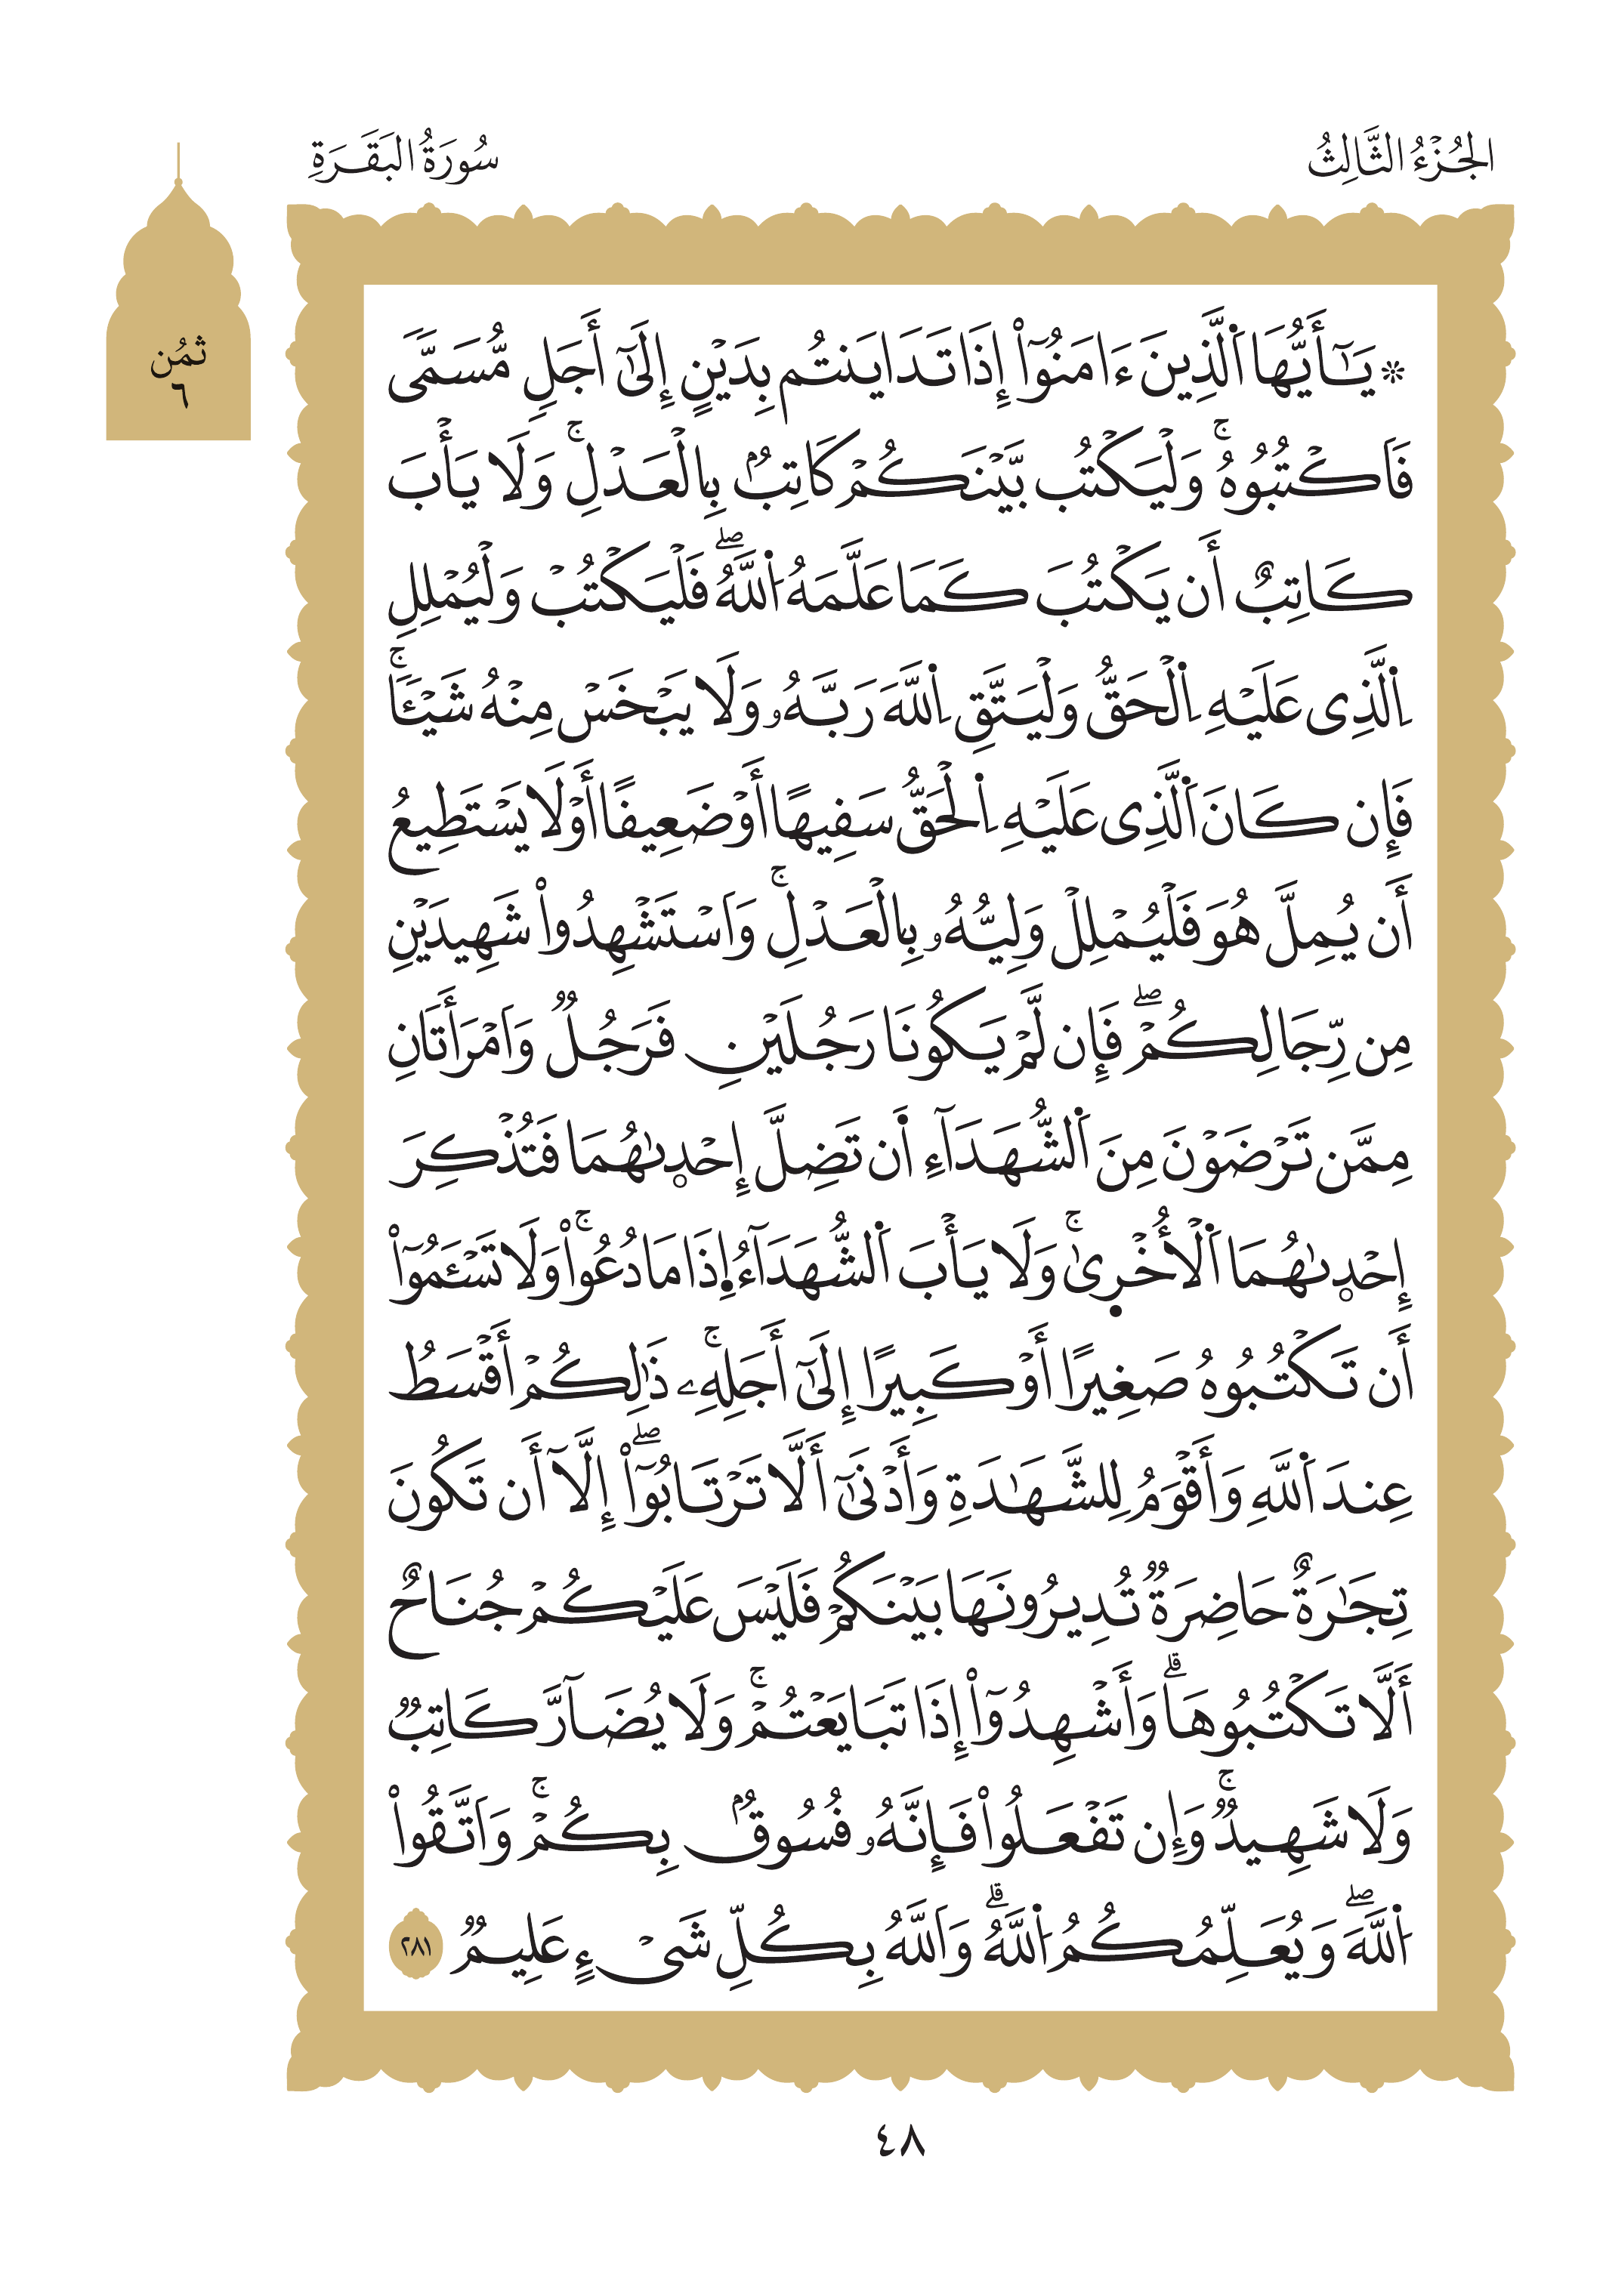 الجُزْءُ الثَّالِثُ
سُورَةُ البَقَرَةِ
ثُمُن
٦
۞ يَـٰٓأَيُّهَا اَ۬لَّذِينَ ءَامَنُوٓاْ إِذَا تَدَايَنتُم بِدَيْنٍ إِلَىٰٓ أَجَلٖ مُّسَمّٗى
فَاَكْتُبُوهُۚ وَلْيَكْتُب بَّيْنَكُمْ كَاتِبُۢ بِالْعَدْلِۚ وَلَا يَأْبَ
كَاتِبٌ أَن يَكْتُبَ كَمَا عَلَّمَهُ اُ۬للَّهُۖ فَلْيَكْتُبْ وَلْيُمْلِلِ
اِ۬لَّذِى عَلَيْهِ اِ۬لْحَقُّ وَلْيَتَّقِ اِ۬للَّهَ رَبَّهُۥ وَلَا يَبْخَسْ مِنْهُ شَيْـٔٗاۚ
فَإِن كَانَ اَ۬لَّذِى عَلَيْهِ اِ۬لْحَقُّ سَفِيهًا أَوْ ضَعِيفًا أَوْ لَا يَسْتَطِيعُ
أَن يُمِلَّ هُوَ فَلْيُمْلِلْ وَلِيُّهُۥ بِالْعَدْلِۚ وَاَسْتَشْهِدُواْ شَهِيدَيْنِ
مِن رِّجَالِكُمْۖ فَإِن لَّمْ يَكُونَا رَجُلَيْنِ فَرَجُلٞ وَاَمْرَأَتَانِ
مِمَّن تَرْضَوْنَ مِنَ اَ۬لشُّهَدَآءِ اَ۬ن تَضِلَّ إِحْدٜىٰهُمَا فَتُذْكِرَ
إِحْدٜىٰهُمَا اَ۬لْأُخْرٜىٰۚ وَلَا يَأْبَ اَ۬لشُّهَدَآءُ اِ۪ذَا مَا دُعُواْۚ وَلَا تَسْـَٔمُوٓاْ
أَن تَكْتُبُوهُ صَغِيرًا أَوْ كَبِيرًا إِلَىٰٓ أَجَلِهِۦۚ ذَٰلِكُمْ أَقْسَطُ
عِندَ اَ۬للَّهِ وَأَقْوَمُ لِلشَّهَٰدَةِ وَأَدْنَىٰٓ أَلَّا تَرْتَابُوٓاْۖ إِلَّآ أَن تَكُونَ
تِجَٰرَةٌ حَاضِرَةٞ تُدِيرُونَهَا بَيْنَكُمْ فَلَيْسَ عَلَيْكُمْ جُنَاحٌ
أَلَّا تَكْتُبُوهَاۗ وَأَشْهِدُوٓاْ إِذَا تَبَايَعْتُمْۚ وَلَا يُضَآرَّ كَاتِبٞ
وَلَا شَهِيدٞۚ وَإِن تَفْعَلُواْ فَإِنَّهُۥ فُسُوقُۢ بِكُمْۚ وَاَتَّقُواْ
اُ۬للَّهَۖ وَيُعَلِّمُكُمُ اُ۬للَّهُۗ وَاَللَّهُ بِكُلِّ شَىْءٍ عَلِيمٞ ٢٨١
٤٨